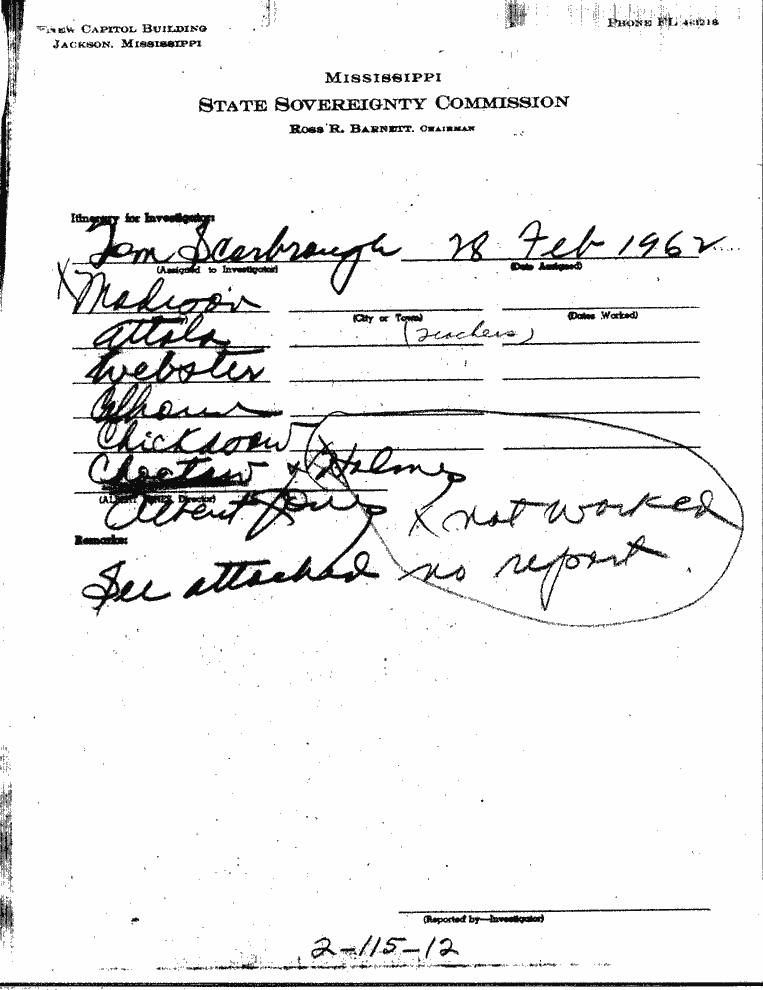 NEW CAPITOL BUILDING
JACKSON, MISSISSIPPI
PHONE FL
MISSISSIPPI
STATE SOVEREIGNTY COMMISSION
ROSS R. BARNETT, CHAIRMAN
Itinerary for Investigator:
Tom Scarbrough 28 Feb 1962
(Assigned to Investigator) (Date Assigned)
X Madison
(City or Town) (Dates Worked)
Attala (teachers)
Webster
Calhoun
Chickasaw
Choctaw X Holmes
(ALBERT JONES, Director)
Albert Jones X not worked
Remarks:
See attached no report
(Reported by—Investigator)
2-115-12